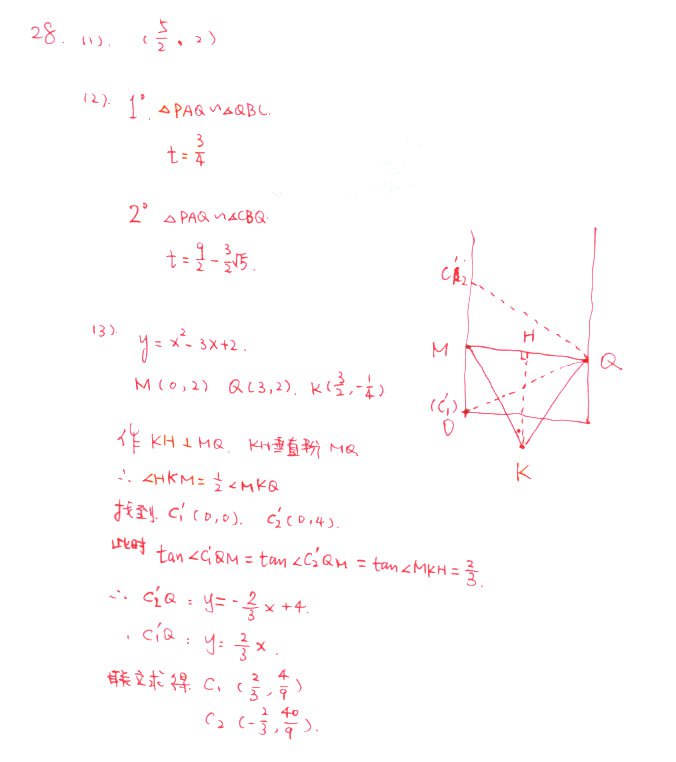 28. (1). (5/2, 2)
(2). 1°. △PAQ∽△QBC.
t=3/4
2° △PAQ∽△CBQ
t=9/2-3/2√5.
(3). y=x²-3x+2.
M(0,2) Q(3,2). K(3/2,-1/4)
作 KH⊥MQ. KH垂直平分 MQ
∴ ∠HKM=1/2∠MKQ
找到. C₁'(0,0). C₂'(0,4).
此时 tan∠C₁'QM=tan∠C₂'QM=tan∠MKH=2/3.
∴ C₂'Q: y=-2/3x+4.
, C₁'Q: y=2/3x.
联立求得. C₁(2/3,4/9)
C₂(-2/3,40/9).
C₂'
M
H
Q
(C₁')
O
K